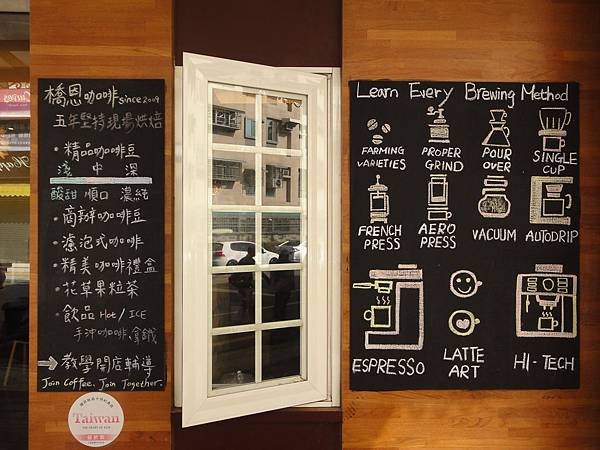 橋恩咖啡 since 2009
五年堅持現場烘焙
・精品咖啡豆
淺 中 深
酸甜 順口 濃純
・商辦咖啡豆
・濾泡式咖啡
・精美咖啡禮盒
・花草果粒茶
・飲品 Hot / ICE
手沖咖啡、拿鐵
→教學開店輔導
Join Coffee. Join Together.
Taiwan
THE HEART OF ASIA
Learn Every Brewing Method
FARMING VARIETIES
PROPER GRIND
POUR OVER
SINGLE CUP
FRENCH PRESS
AERO PRESS
VACUUM
AUTODRIP
ESPRESSO
LATTE ART
HI-TECH